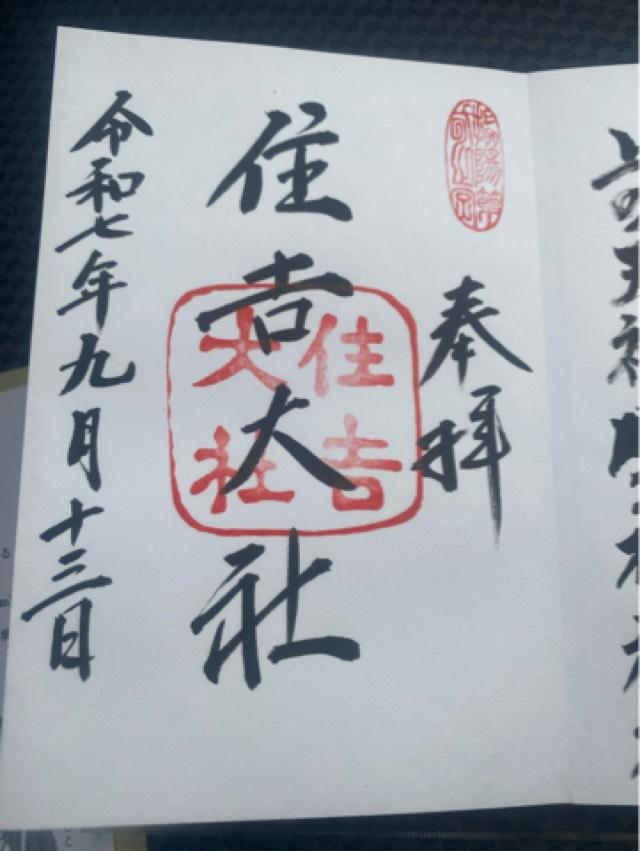 奉拝
住吉大社
住吉
大社
令和七年九月十三日